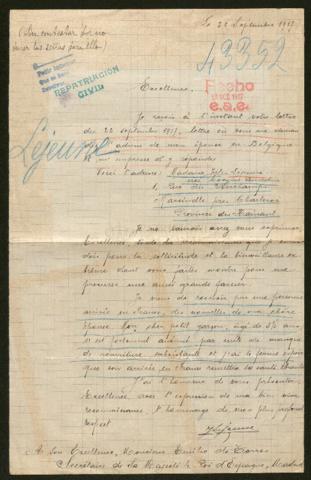 Le 28 Septembre 1917
(Sin contestar por no
tener las señas para ello)
43352
REPATRIACIÓN
CIVIL
Fecho
e.a.e.
Lejeune
Excellence,
Je reçois à l'instant votre lettre
du 22 septembre 1917, lettre où vous me
l'adresse de mon épouse en Belgique
m'empresse d'y répondre
Voici l'adresse: Madame Lejeune
Rue des
Marcinelle près Charleroi
Province du Hainaut
Je ne saurais assez vous exprimer,
Excellence, toute la reconnaissance que je vous
dois pour la sollicitude et la bienveillance ex-
trême dont vous faites montre pour me
procurer une aussi grande faveur.
Je viens de recevoir par une personne
arrivée en France, des nouvelles de ma chère
épouse. Mon cher petit garçon, âgé de 5 ½ ans,
est fortement par suite de manque
de nourriture substantielle et j'ai le ferme espoir
que son arrivée en France remettra sa santé
J'ai l'honneur de vous présenter,
Excellence, avec l'expression de ma bien vive
reconnaissance, l'hommage de mon plus profond
respect
Lejeune
A Son Excellence, Monsieur Emilio de Torres
Secrétaire de Sa Majesté le Roi d'Espagne, Madrid